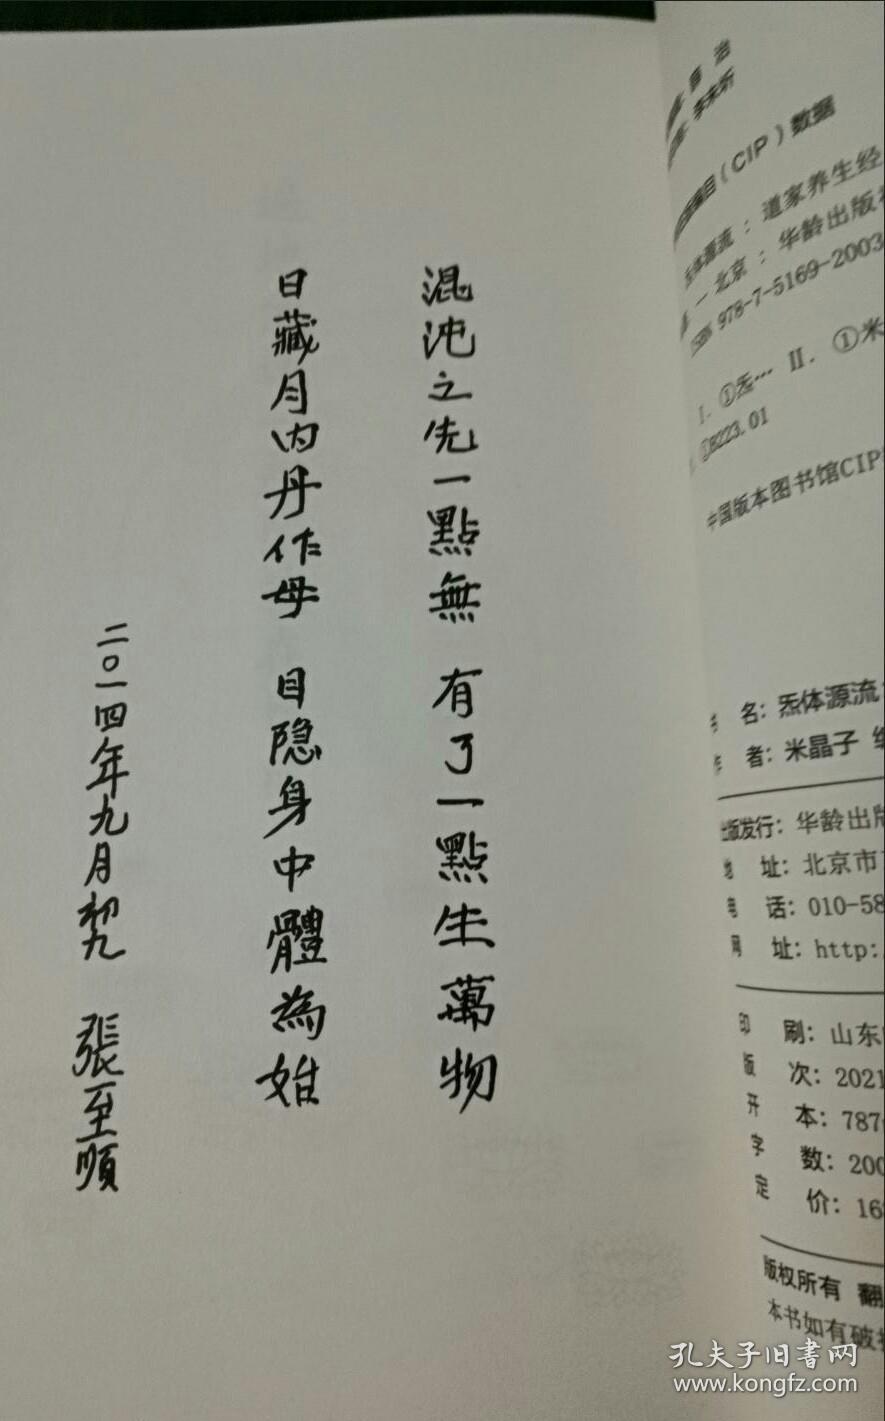 混沌之先一點無 有了一點生萬物
日藏月内丹作母 目隐身中體為始
二〇一四年九月初九 張至順
目（CIP）数据
源流：道家养生经
北京：华龄出版社
978-7-5169-2003
Ⅰ. ①炁… Ⅱ. ①米
①B223.01
中国版本图书馆CIP
名：炁体源流
者：米晶子
出版发行：华龄出版
地 址：北京市
电 话：010-58
网 址：http:
印 刷：山东
版 次：2021
开 本：787
字 数：200
定 价：16
版权所有 翻
本书如有破
孔夫子旧書网
www.kongfz.com